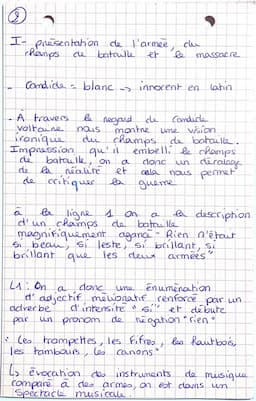 2
I- présentation de l'armée, du
champs de bataille et le massacre
- Candide = blanc → innocent en latin
- A travers le regard de Candide
voltaire nous montre une vision
ironique du champs de bataille.
Impression qu'il embelli le champs
de bataille, on a donc un décalage
de la réalité et cela nous permet
de critiquer la guerre
à la ligne 1 on a la description
d'un champs de bataille
magnifiquement agencé "Rien n'était
si beau, si leste, si brillant, si
brillant que les deux armées"
L1: On a donc une énumération
d'adjectif mélioratif renforcé par un
adverbe d'intensité "si" et débute
par un pronom de négation "rien"
"Les trompettes, les fifres, les hautbois,
les tambours, les canons"
↳ évocation des instruments de musique
comparé à des armes, on est dans un
spectacle musicale.